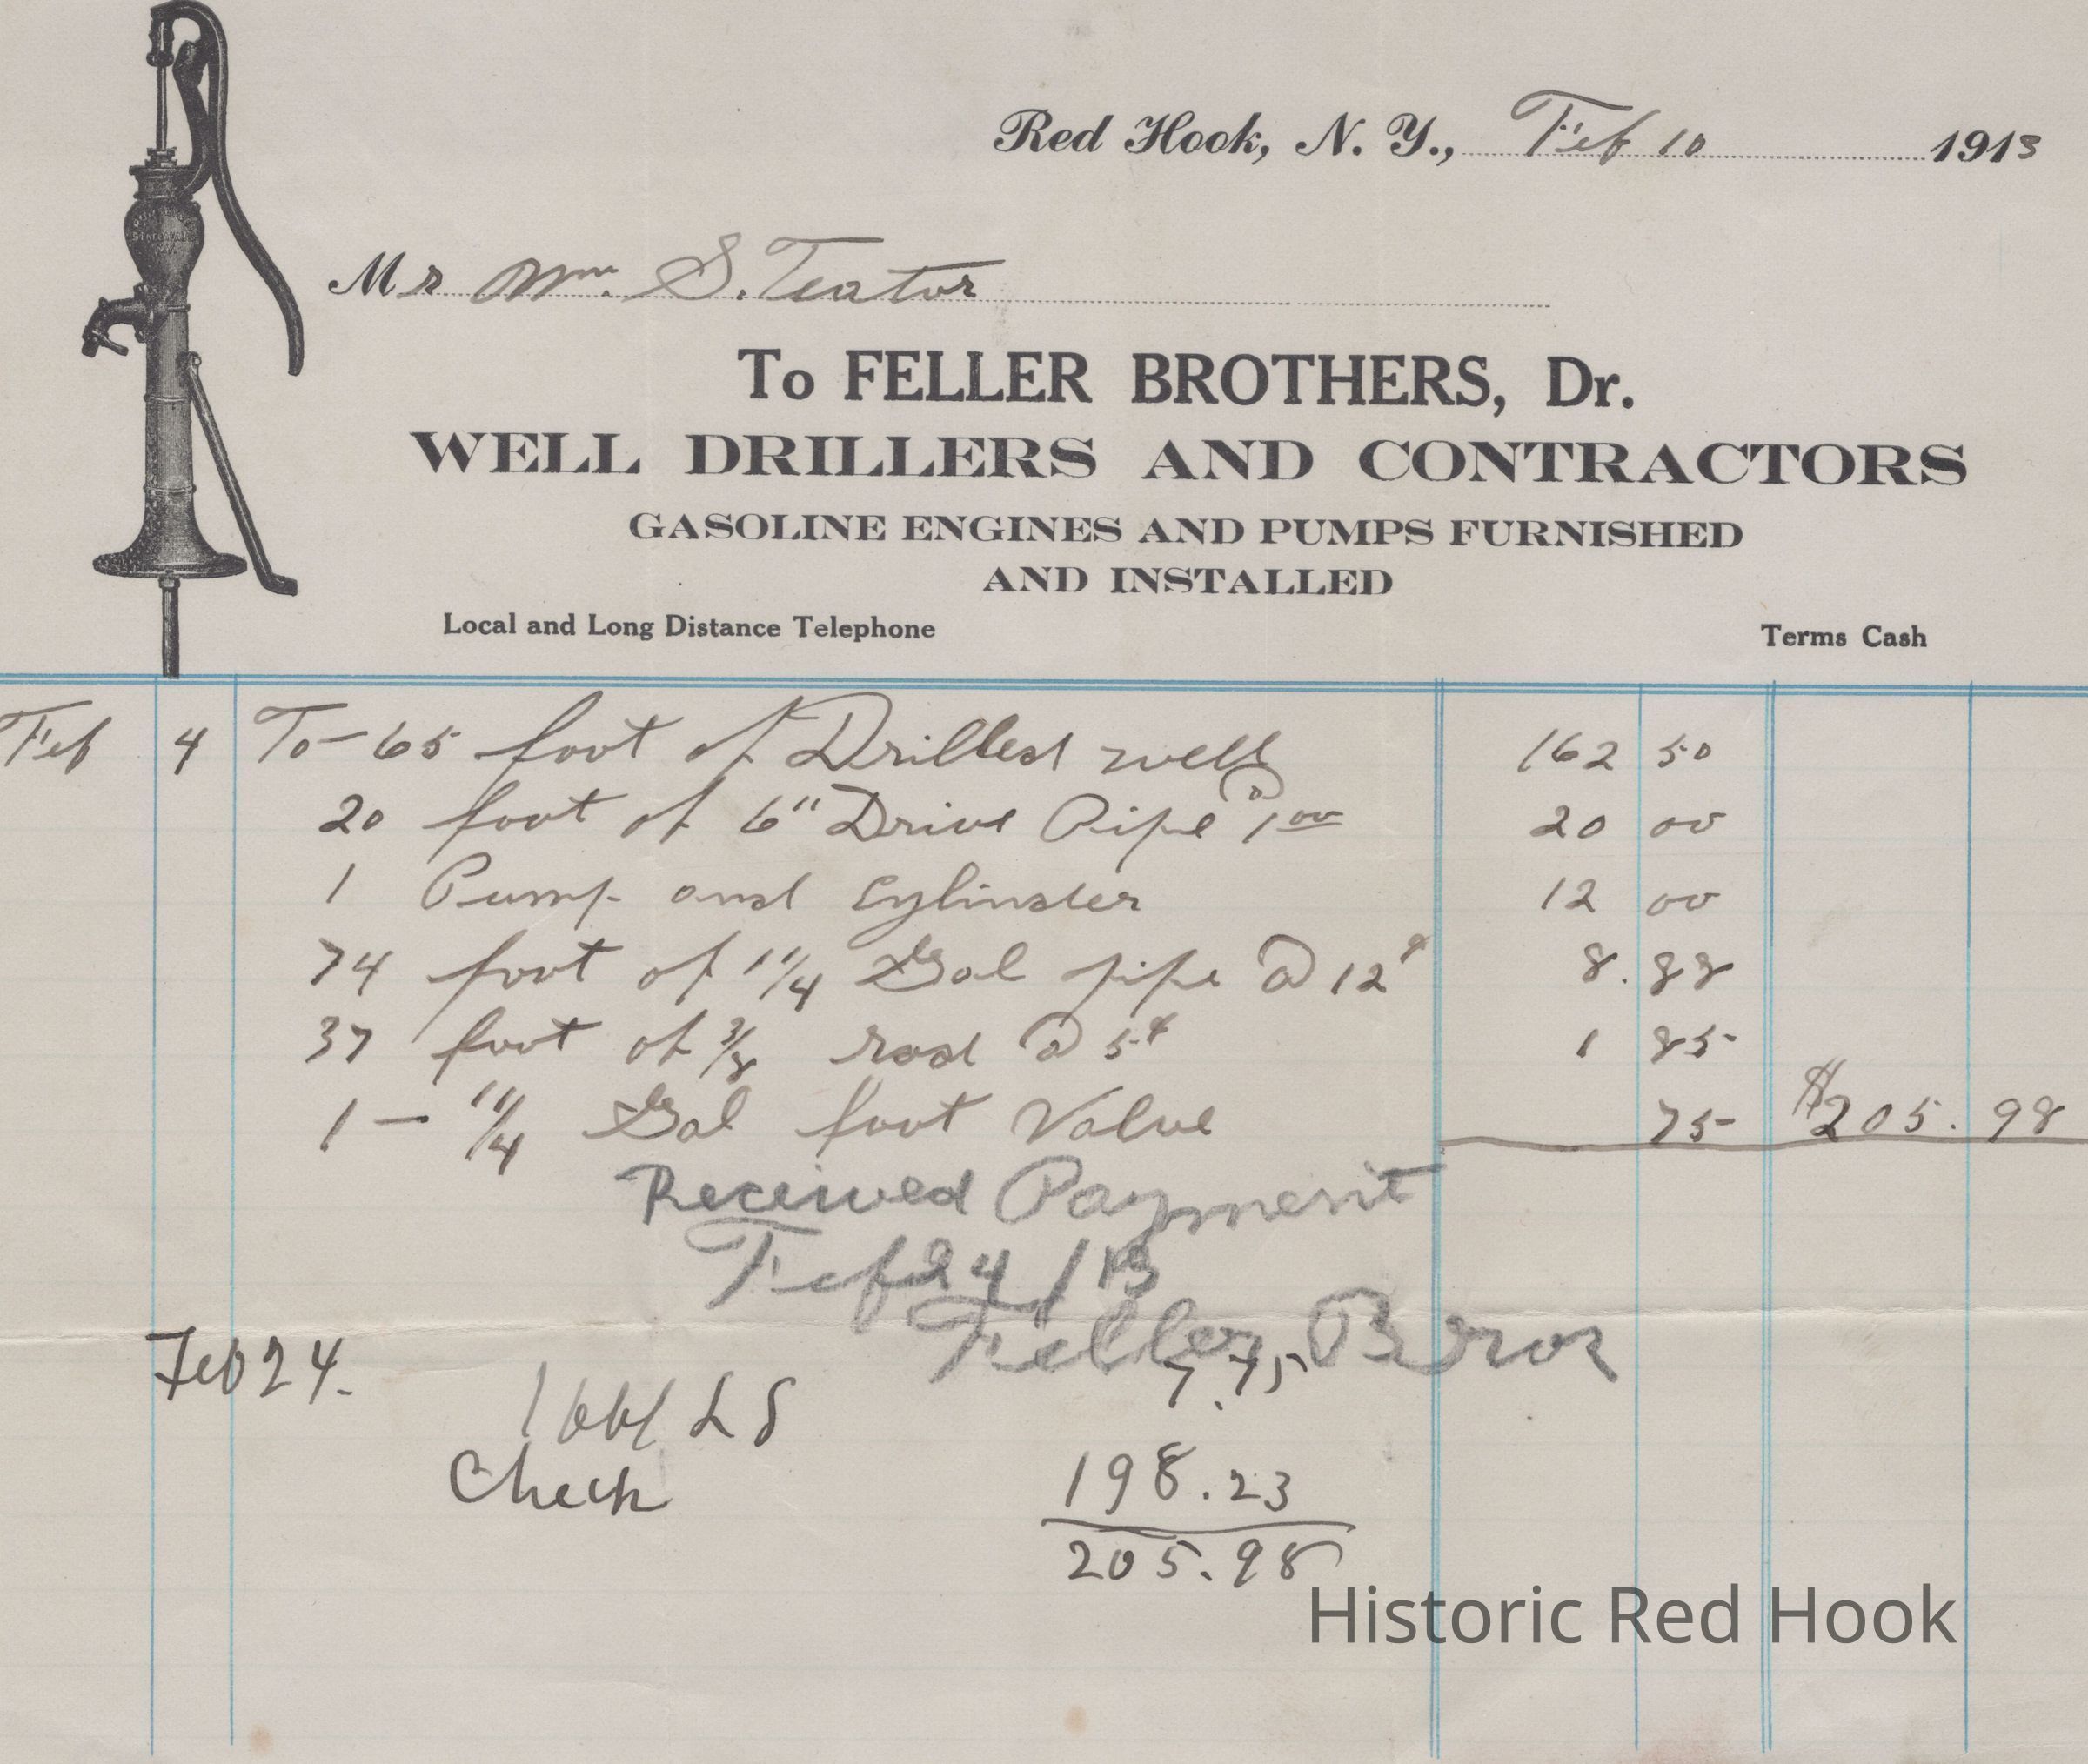 Red Hook, N. Y., Feb 10 1913
Mr Wm. S. Teator
To FELLER BROTHERS, Dr.
WELL DRILLERS AND CONTRACTORS
GASOLINE ENGINES AND PUMPS FURNISHED
AND INSTALLED
Local and Long Distance Telephone Terms Cash
Feb 4 To- 65 foot of Drilled well 162 50
20 foot of 6" Drive Pipe @ 1 00 20 00
1 Pump and Cylinder 12 00
74 foot of 1 1/4 Gal pipe @ 12¢ 8. 88
37 foot of 3/8 rod @ 5¢ 1 85
1 - 1 1/4 Gal foot Valve 75 $205. 98
Received Payment
Feb 24/13
Feller Bros
Feb 24. 7.75
Check 198.23
205.98
Historic Red Hook